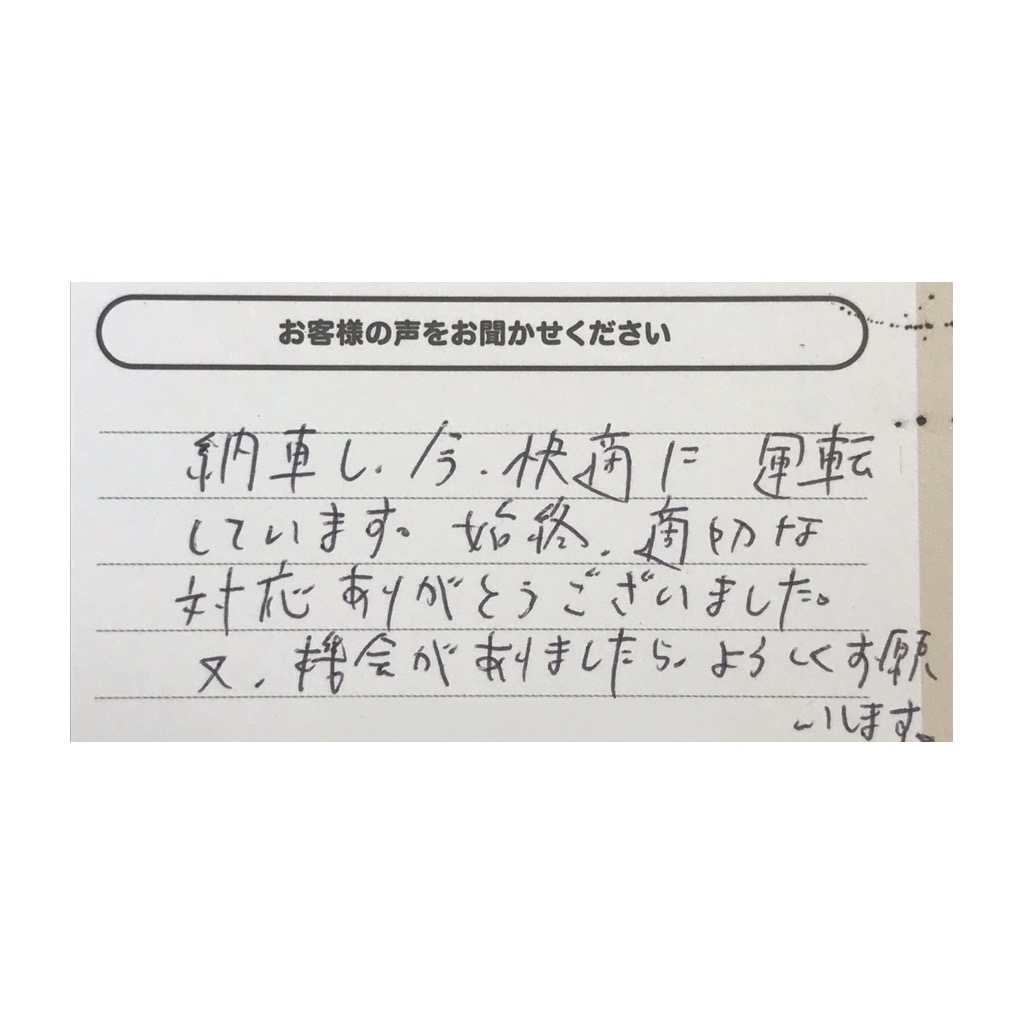 お客様の声をお聞かせください
納車し、今、快適に 運転
しています。始終、適切な
対応ありがとうございました。
又、機会がありましたら、よろしくお願
いします。